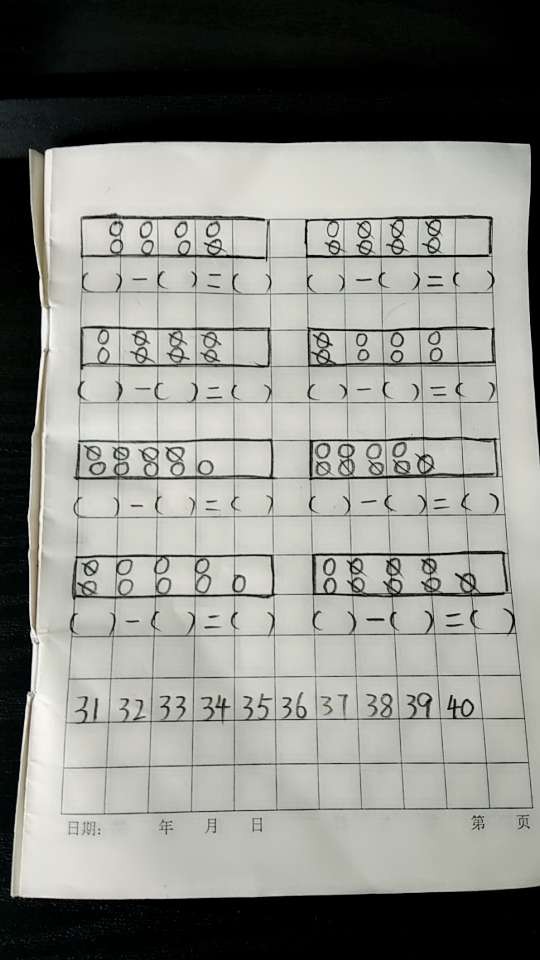 ( ) - ( ) = ( ) ( ) - ( ) = ( )
( ) - ( ) = ( ) ( ) - ( ) = ( )
( ) - ( ) = ( ) ( ) - ( ) = ( )
( ) - ( ) = ( ) ( ) - ( ) = ( )
31 32 33 34 35 36 37 38 39 40
日期: 年 月 日 第 页